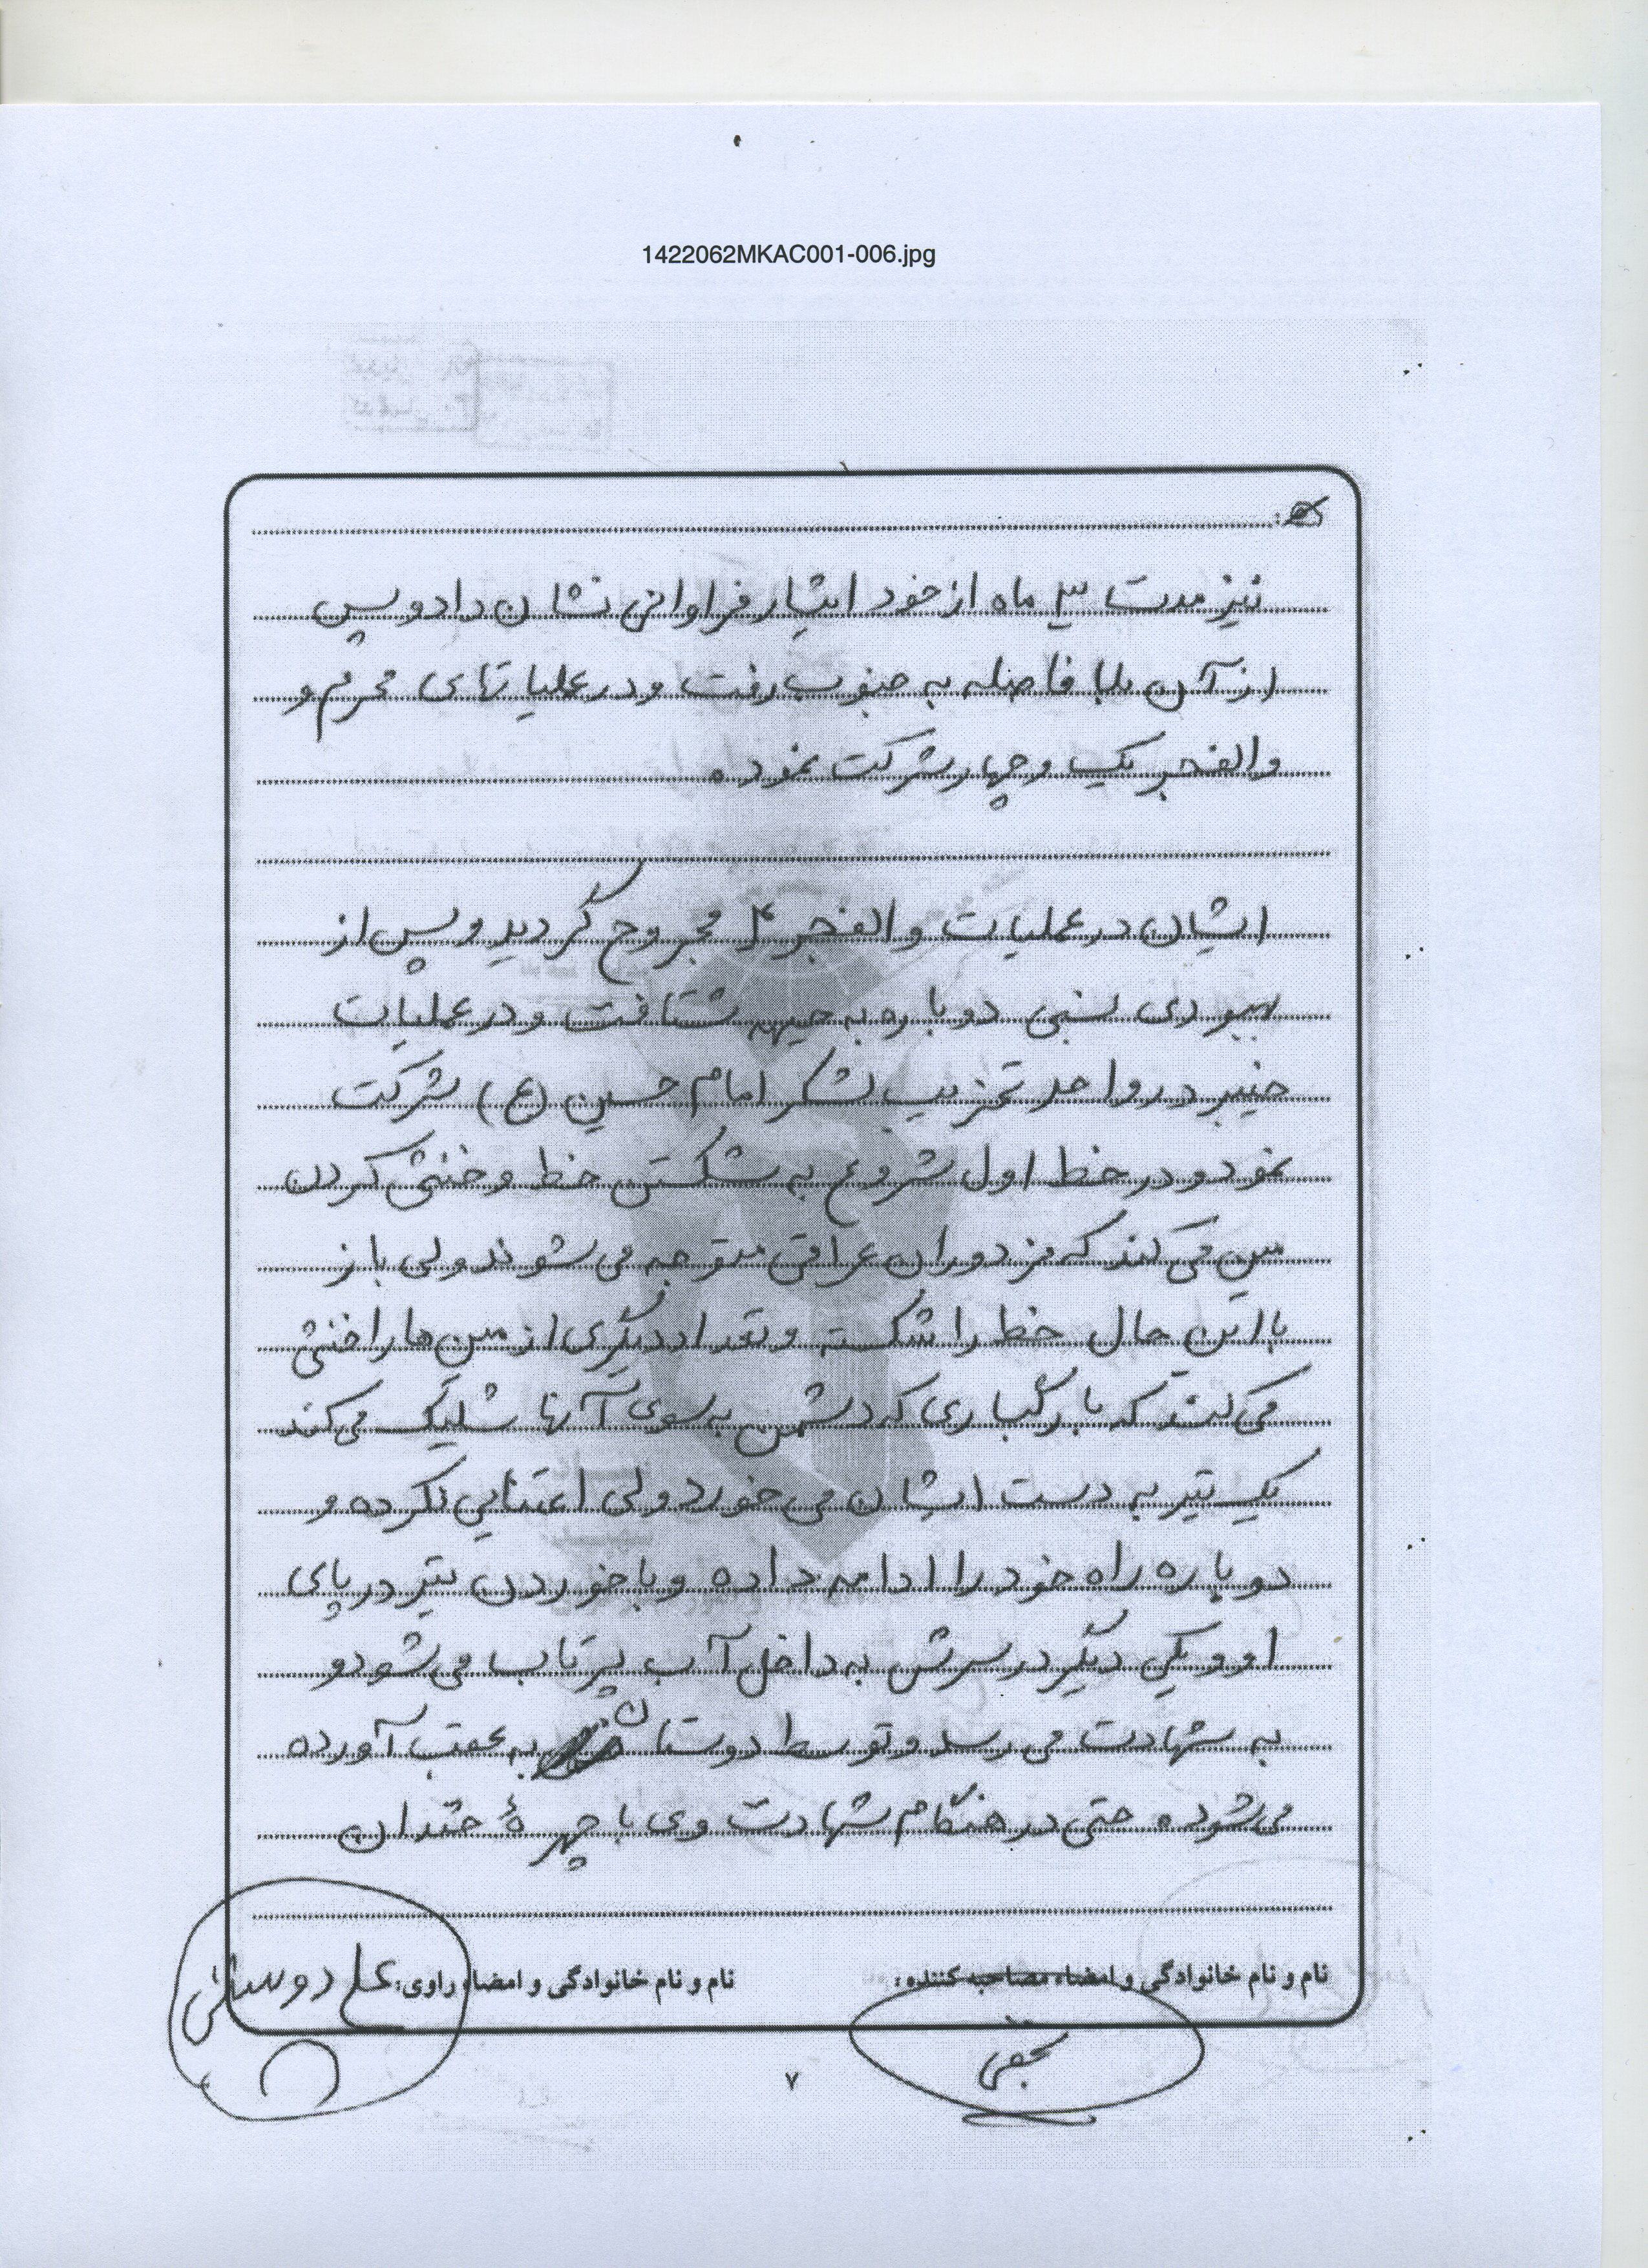 1422062MKAC001-006.jpg
نیز مدت ۳ ماه از خود ایثار فراوانی نشان داد و پس
از آن بلا فاصله به جنوب رفت و در عملیاتهای محرم و
والفجر یک و چهار شرکت نمود.
ایشان در عملیات والفجر ۴ مجروح گردید و پس از
بهبودی نسبی دوباره به جبهه شتافت و در عملیات
خیبر در واحد تخریب لشکر امام حسین (ع) شرکت
نمود و در خط اول شروع به شکستن خط و خنثی کردن
مین می کند که مزدوران عراقی متوجه می شوند ولی باز
با این حال خط را شکسته و تعداد دیگری از مین ها را خنثی
می کنند که با رگباری که دشمن به سوی آنها شلیک می کند
یک تیر به دست ایشان می خورد ولی اعتنایی نکرده و
دوباره راه خود را ادامه داده و با خوردن تیر در پای
او و یکی دیگر در سرش به داخل آب پرتاب می شود و
به شهادت می رسد و توسط دوستان به عقب آورده
می شود. حتی در هنگام شهادت وی با چهرهٔ خندان
نام و نام خانوادگی و امضاء مصاحبه کننده: نام و نام خانوادگی و امضاء راوی: علی
۷